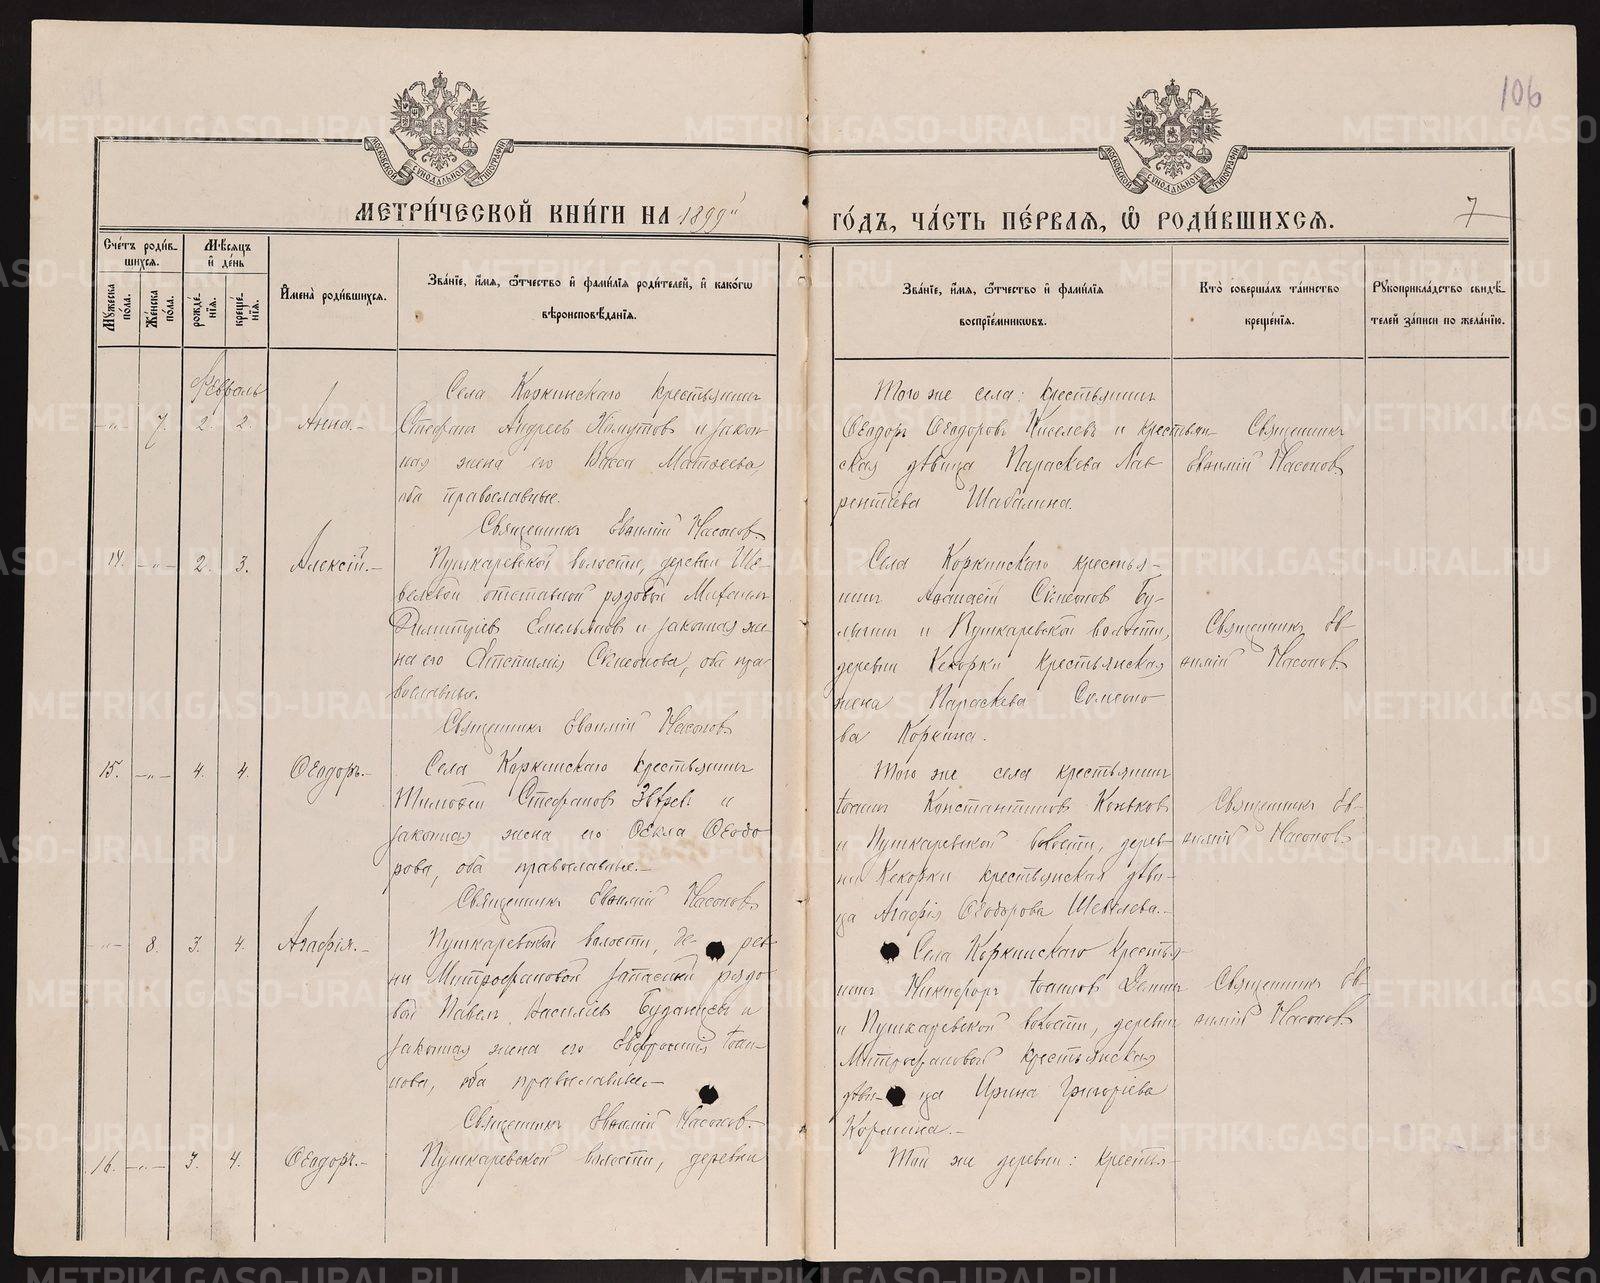 106
МЕТРИ́ЧЕСКОЙ КНИ́ГИ НА 1899й
ГО́ДЪ, ЧА́СТЬ ПЕ́РВАЯ, Ѽ РОДИ́ВШИХСЯ.
7
Сче́тъ роди́в-
шихся.
Мѣ́сяцъ
и҆ де́нь
Мꙋ́жеска по́ла.
Же́нска по́ла.
рожде́-
нїѧ.
креще́-
нїѧ.
И҆мена̀ роди́вшихсѧ.
Зва́нїе, и҆́мѧ, ѻ҆́тчество и҆ фами́лїѧ роди́телей, и҆ како́гѡ
вѣроисповѣ́данїѧ.
Зва́нїе, и҆́мѧ, ѻ҆́тчество и҆ фами́лїѧ
воспрїе́мникѡвъ.
Кто̀ соверша́лъ та́инство
креще́нїѧ.
Рꙋкоприкла́дство свидѣ́-
телей за́писи по жела́нїю.
Февраль
-"- 7. 2. 2. Анна.-
Села Коркинскаго крестьянинъ
Стефанъ Андреевъ и закон
ная жена его Васса Матѳеева,
оба православные.
Священникъ Евѳимій Насоновъ
Того же села: крестьянинъ
Ѳеодоръ Ѳеодоровъ Киселевъ и крестьян-
ская дѣвица Параскева Лав
рентіева Шабалина.
Священникъ
Евѳимій Насоновъ
14. -"- 2. 3. Алексій.-
Пушкаревской волости, деревни Ше-
велевой отставной рядовой Михаилъ
Димитріевъ Емельяновъ и законная же-
на его Симеонова, оба пра-
вославные.
Священникъ Евѳимій Насоновъ
Села Коркинскаго крестья-
нинъ Аѳанасій Симеоновъ Бу-
и Пушкаревской волости,
деревни Кекорки крестьянская
жена Параскева Симеоно
ва Коркина.
Священникъ Ев-
ѳимій Насоновъ
15. -"- 4. 4. Ѳеодоръ.-
Села Коркинскаго крестьянинъ
Тимоѳей Стефановъ Звѣревъ и
законная жена его Ѳекла Ѳеодо
рова, оба православные.-
Священникъ Евѳимій Насоновъ
Того же села крестьянинъ
Іоаннъ Константиновъ Коньковъ
и Пушкаревской волости, дерев-
ни Кекорки крестьянская дѣви-
ца Агафія Ѳеодорова Шевелева.-
Священникъ Ев-
ѳимій Насоновъ
-"- 8. 3. 4. Агафія.-
Пушкаревской волости, де- рев
ни Митрофановой запасный рядо
вой Павелъ Василіевъ Буданцевъ и
законная жена его Евфросинія Іоан-
нова, оба православные.-
Священникъ Евѳимій Насоновъ.-
Села Коркинскаго крестья-
нинъ Никифоръ Іоанновъ
и Пушкаревской волости, деревни
Митрофановой крестьянская
дѣви- ца Ирина Григоріева
Кормина.-
Священникъ Ев-
ѳимій Насоновъ
16. -"- 3. 4. Ѳеодоръ.-
Пушкаревской волости, деревни
Той же деревни: крестья-